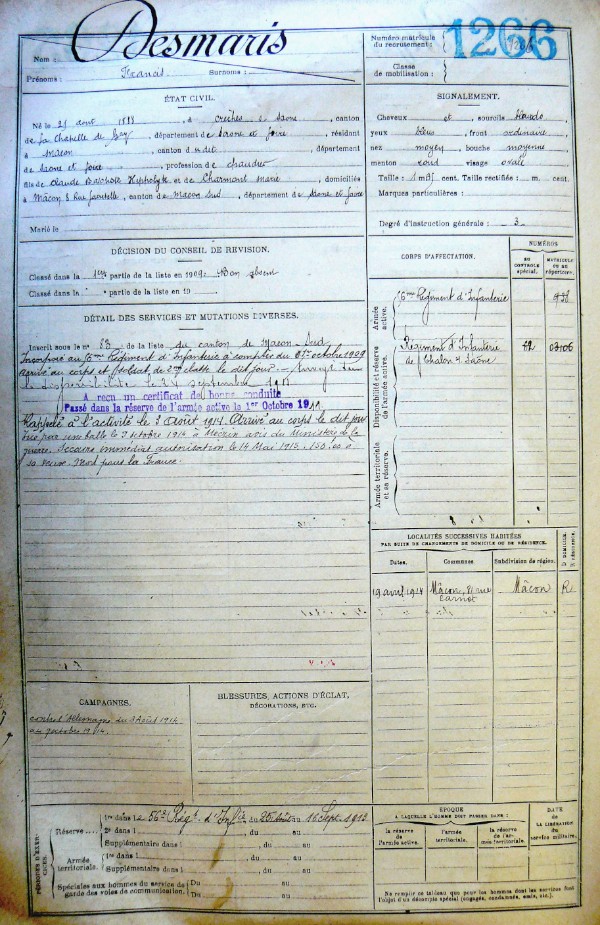 Nom : Desmaris
Prénoms : Francis Surnoms :
Numéro matricule du recrutement : 1266
Classe de mobilisation :
ÉTAT CIVIL.
Né le août à Crèches s Saône, canton
de La Chapelle de , département de Saône et Loire, résidant
à Mâcon, canton du dit, département
de Saône et Loire, profession de
fils de Claude Hippolyte et de Charmont Marie, domiciliés
à Mâcon 8 Rue , canton de Mâcon Sud, département de Saône et Loire
Marié le
SIGNALEMENT.
Cheveux et sourcils blonds
yeux bleus, front ordinaire,
nez moyen, bouche moyenne
menton rond visage ovale
Taille : 1 m. cent. Taille rectifiée : m. cent.
Marques particulières :
Degré d'instruction générale : 3
DÉCISION DU CONSEIL DE REVISION.
Classé dans la 1ère partie de la liste en 1909. Bon absent
Classé dans la partie de la liste en 19
DÉTAIL DES SERVICES ET MUTATIONS DIVERSES.
Inscrit sous le n° 33 de la liste du canton de Macon-Sud
Incorporé au Régiment d'Infanterie à compter du octobre 1909
Arrivé au corps et soldat de 2me classe le dit jour. Envoyé dans
la disponibilité le 24 septembre 1911
A reçu un certificat de bonne conduite
Passé dans la réserve de l'armée active le 1er Octobre 1911
Rappelé à l'activité le 3 août 1914. Arrivé au corps le dit jour
Tué par une balle le 7 octobre 1914 à avis du Ministère de la
guerre. Secours immédiat autorisation le 14 Mai 1915. 150 à
sa veuve. Mort pour la France.
CORPS D'AFFECTATION.
NUMÉROS
AU CONTRÔLE spécial.
MATRICULE OU DU répertoire.
Armée active.
Régiment d'Infanterie
Disponibilité et réserve de l'armée active.
Régiment d'Infanterie
de Chalon s Saône
Armée territoriale et sa réserve.
LOCALITÉS SUCCESSIVES HABITÉES
PAR SUITE DE CHANGEMENTS DE DOMICILE OU DE RÉSIDENCE.
Dates. Communes. Subdivision de région. D. DOMICILE R. RÉSIDENCE.
19 avril 1914 Mâcon, rue Carnot Mâcon R
CAMPAGNES.
contre l'Allemagne du 3 Août 1914
au 7 octobre 1914.
BLESSURES, ACTIONS D'ÉCLAT,
DÉCORATIONS, ETC.
PÉRIODES D'EXERCICES.
Réserve
1re dans le 56e Régt. d'Infie du 25 août au 16 Sept. 1913
2e dans l , du au
Supplémentaire dans l , du au
Armée territoriale
1re dans l , du au
Supplémentaire dans l , du au
Spéciales aux hommes du service de garde des voies de communication. Du au
Du au
EPOQUE
A LAQUELLE L'HOMME DOIT PASSER DANS :
la réserve de l'armée active.
l'armée territoriale.
la réserve de l'armée territoriale.
DATE
DE LA LIBÉRATION du service militaire.
Ne remplir ce tableau que pour les hommes dont les services font
l'objet d'un décompte spécial (engagés, condamnés, omis, etc.).